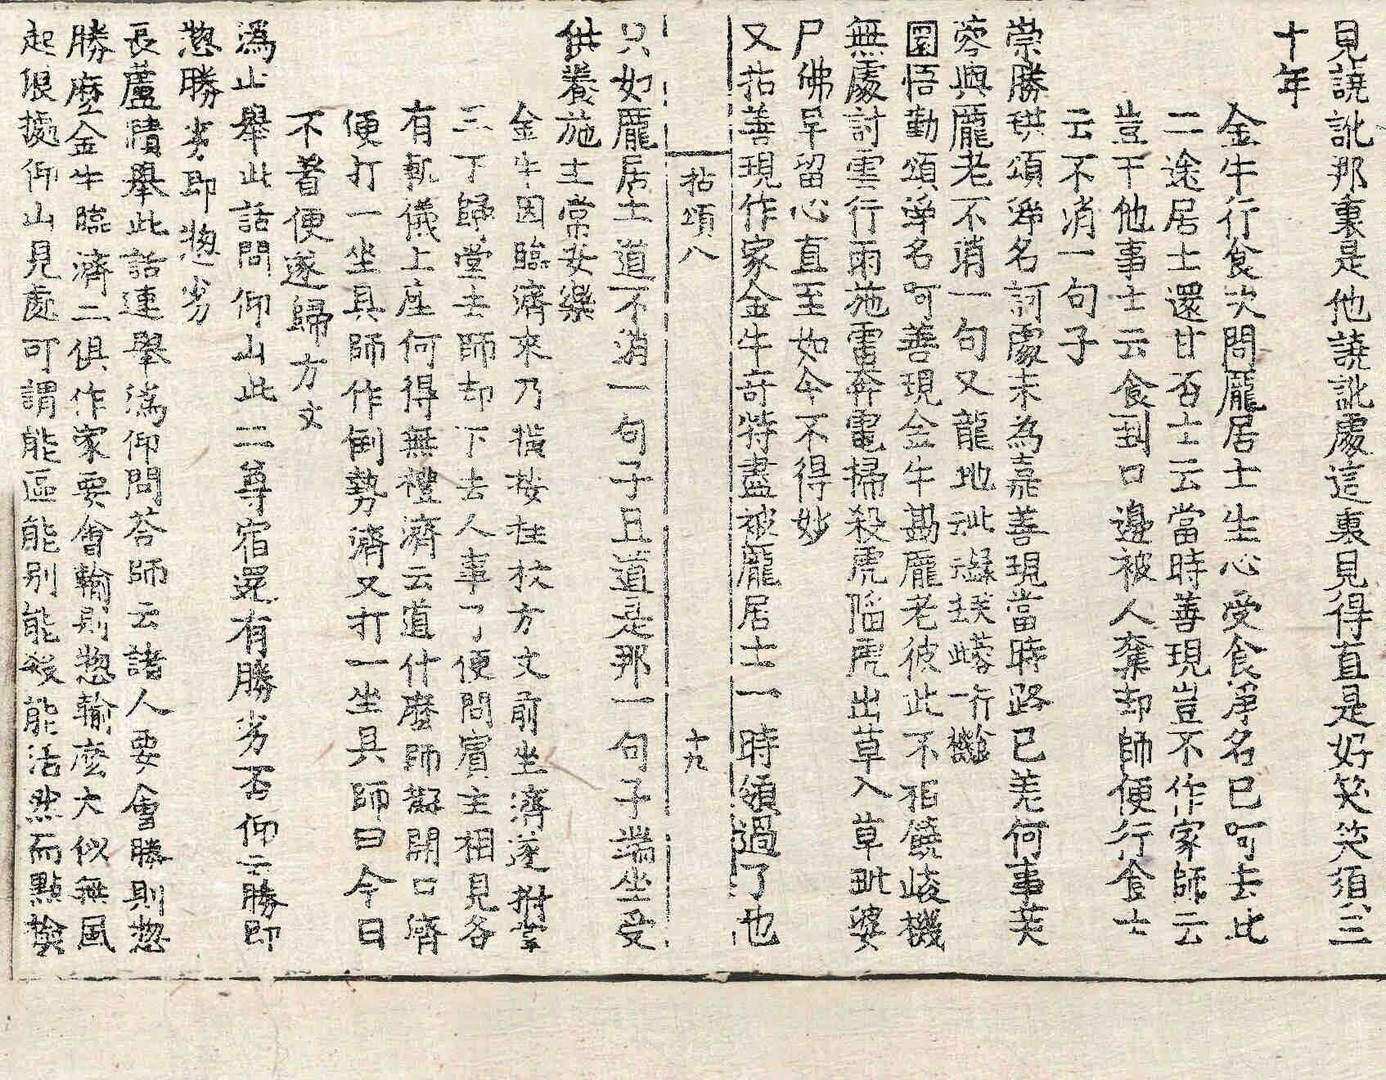 見譊訛那裏是他譊訛處這裏見得直是好笑笑須三
十年
金牛行食次問龐居士生心受食淨名已呵去此
二途居士還甘否士云當時善現豈不作家師云
豈干他事士云食到口邊被人奪却師便行食士
云不消一句子
崇勝珙頌淨名訶處未為嘉善現當時路已差何事芙
蓉與龐老不消一句又龍地
圜悟勤頌淨名呵善現金牛勘龐老彼此不相饒峻機
無處討雲行雨施雷奔電掃殺虎陷虎出草入草毗婆
尸佛早留心直至如今不得妙
又拈善現作家金牛奇特盡被龐居士一時領過了也
拈頌八
十九
只如龐居士道不消一句子且道是那一句子端坐受
供養施主常安樂
金牛因臨濟來乃橫按拄杖方丈前坐濟遂拊掌
三下歸堂去師却下去人事了便問賓主相見各
有軌儀上座何得無禮濟云道什麼師擬開口濟
便打一坐具師作倒勢濟又打一坐具師曰今日
不著便遂歸方丈
溈山舉此話問仰山此二尊宿還有勝劣否仰云勝即
惣勝劣即惣劣
長蘆賾舉此話連舉溈仰問荅師云諸人要會勝則惣
勝麼金牛臨濟二俱作家要會輸則惣輸麼大似無風
起浪據仰山見處可謂能區能别能殺能活然而點撿